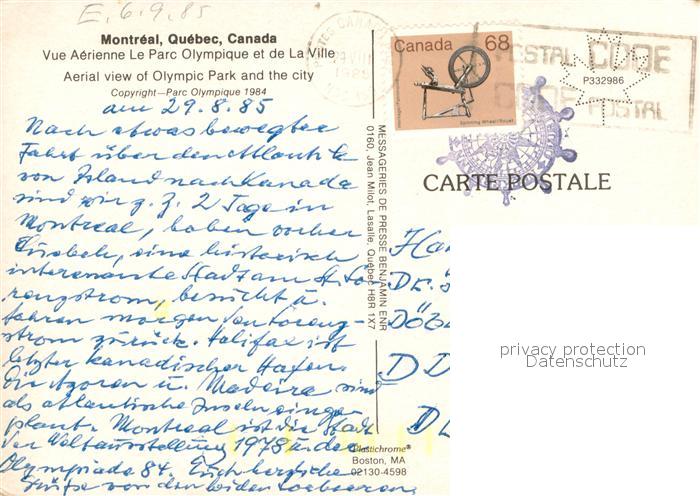 E. 6.9.85
Montréal, Québec, Canada
Vue Aérienne Le Parc Olympique et de La Ville
Aerial view of Olympic Park and the city
Copyright—Parc Olympique 1984
am 29.8.85
Nach etwas bewegter
Fahrt über den Atlantik
von Island nach Kanada
sind wir z. Z. 2 Tage in
Montreal, haben vorher
Quebek, eine historisch
interessante Stadt am St. Lo-
renzstrom, besucht u.
fahren morgen den Lorenz-
strom zurück. Halifax ist
letzter kanadischer Hafen.
Die Azoren u. Madeira sind
als atlantische Inseln einge-
plant. Montreal ist die Stadt
der Weltausstellung 1978 u. der
Olympiade 84. Euch herzliche
Grüße von den beiden
MESSAGERIES DE PRESSE BENJAMIN ENR
0160, Jean Milot, Lasalle, Québec H8R 1X7
Plastichrome®
Boston, MA
02130-4598
Canada 68
Spinning Wheel/Rouet
POSTAL CODE
CODE POSTAL
P332986
CARTE POSTALE
privacy protection
Datenschutz